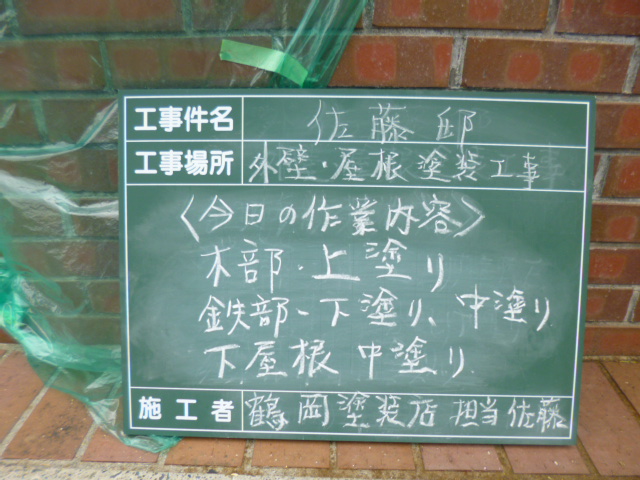 工事件名 佐藤邸
工事場所 外壁・屋根塗装工事
〈今日の作業内容〉
木部・上塗り
鉄部-下塗り、中塗り
下屋根 中塗り
施工者 鶴岡塗装店 担当 佐藤